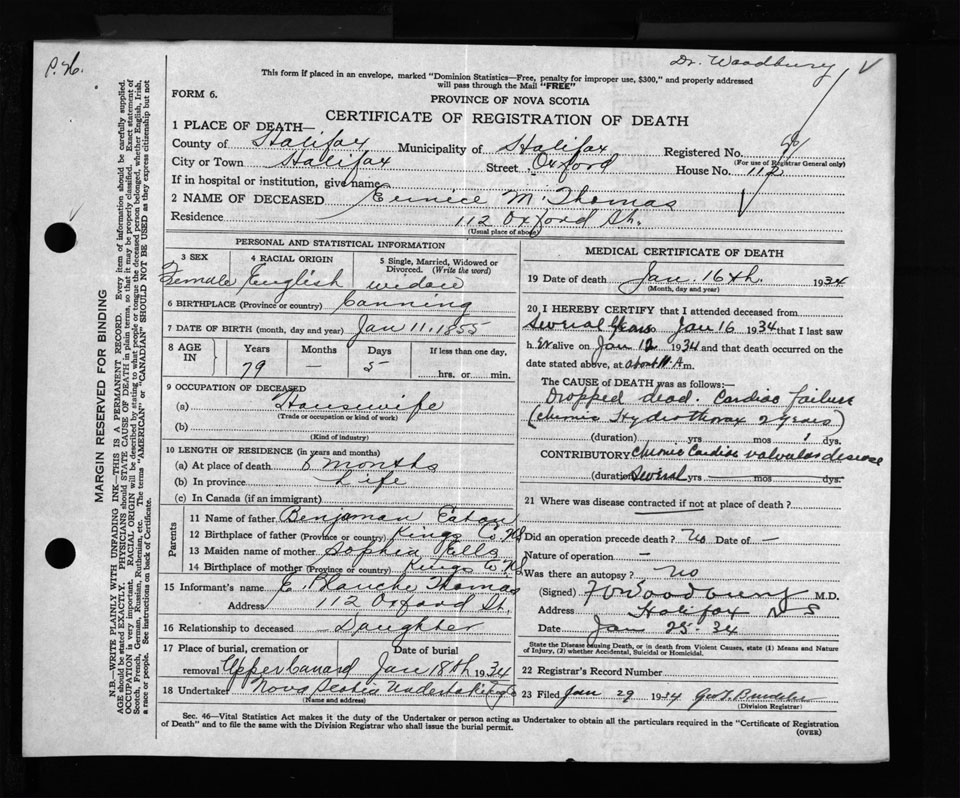 P. H.
Dr. Woodbury
This form if placed in an envelope, marked "Dominion Statistics—Free, penalty for improper use, $300," and properly addressed
will pass through the Mail "FREE"
FORM 6.
PROVINCE OF NOVA SCOTIA
CERTIFICATE OF REGISTRATION OF DEATH
1 PLACE OF DEATH—
County of Halifax Municipality of Halifax Registered No.
(For use of Registrar General only)
City or Town Halifax Street Oxford House No. 112
If in hospital or institution, give name
2 NAME OF DECEASED Eunice M. Thomas
Residence 112 Oxford St.
(Usual place of abode)
PERSONAL AND STATISTICAL INFORMATION
3 SEX Female
4 RACIAL ORIGIN English
5 Single, Married, Widowed or Divorced. (Write the word) widow
6 BIRTHPLACE (Province or country) Canning
7 DATE OF BIRTH (month, day and year) Jan 11. 1855
8 AGE IN Years Months Days If less than one day,
79 — 5 hrs. or min.
9 OCCUPATION OF DECEASED
(a) Housewife
(Trade or occupation or kind of work)
(b)
(Kind of industry)
10 LENGTH OF RESIDENCE (in years and months)
(a) At place of death 8 months
(b) In province Life
(c) In Canada (if an immigrant)
Parents
11 Name of father Benjaman Eaton
12 Birthplace of father (Province or country) Kings Co NS
13 Maiden name of mother Sophia Ells
14 Birthplace of mother (Province or country) Kings Co NS
15 Informant's name E. Blanche Thomas
Address 112 Oxford St.
16 Relationship to deceased Daughter
17 Place of burial, cremation or removal Upper Canard
Date of burial Jan 18th 1934
18 Undertaker Nova Scotia Undertaking Co
(Name and address)
MEDICAL CERTIFICATE OF DEATH
19 Date of death Jan. 16th. 1934
(Month, day and year)
20 I HEREBY CERTIFY that I attended deceased from
Several Years Jan 16 1934 that I last saw
h er alive on Jan 12 1934 and that death occurred on the
date stated above, at about 11 A m.
The CAUSE OF DEATH was as follows:
Dropped dead. Cardiac failure
(chronic Hydrothorax 2 years)
(duration) yrs mos 1 dys.
CONTRIBUTORY Chronic Cardiac valvular disease
(duration) Several yrs — mos — dys.
21 Where was disease contracted if not at place of death?
Did an operation precede death? No Date of —
Nature of operation —
Was there an autopsy? No
(Signed) Woodbury M.D.
Address Halifax N S
Date Jan 25-34
State the Disease causing Death, or in death from Violent Causes, state (1) Means and Nature
of Injury, (2) whether Accidental, Suicidal or Homicidal.
22 Registrar's Record Number
23 Filed Jan 29 1934
(Division Registrar)
Sec. 46—Vital Statistics Act makes it the duty of the Undertaker or person acting as Undertaker to obtain all the particulars required in the "Certificate of Registration
of Death" and to file the same with the Division Registrar who shall issue the burial permit.
(OVER)
MARGIN RESERVED FOR BINDING
N.B.—WRITE PLAINLY WITH UNFADING INK—THIS IS A PERMANENT RECORD. Every item of information should be carefully supplied.
AGE should be stated EXACTLY. PHYSICIANS should STATE CAUSE OF DEATH in plain terms, so that it may be properly classified. Exact statement of
OCCUPATION is very important. RACIAL ORIGIN will be described by stating to what people or tongue the deceased person belonged, whether English, Irish,
Scotch, French, German, Russian, Ruthenian, etc. The terms "AMERICAN" or "CANADIAN" SHOULD NOT BE USED as they express citizenship but not
a race or people. See instructions on back of Certificate.